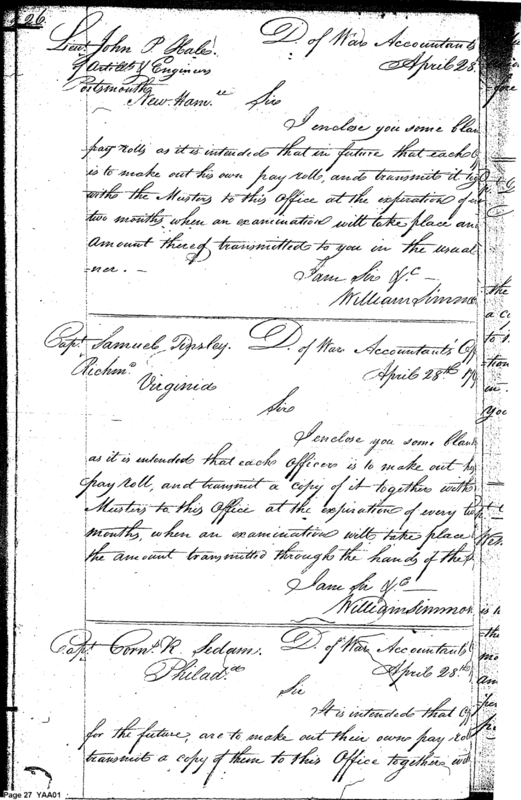 26.
Lieut. John P. Hale. D. of War Accountants
of Artills & Engineers April 28.
Portsmouth
New Ham.re Sir
I enclose you some blan
pay rolls as it is intended that in future that each
is to make out his own pay roll, and transmit it tog
with the Musters to this Office at the expiration of
two months when an examination will take place an
amount thereof transmitted to you in the usual
-ner. -
I am Sir &c -
William Simmo
Capt. Samuel Tinsley. D. of War Accountants Off
Richmd April 28th 179
Virginia
Sir
I enclose you some blank
as it is intended that each Officers is to make out his
pay roll, and transmit a copy of it together with
Musters to this Office at the expiration of every two
months, when an examination will take place
the amount transmitted through the hands of the
I am Sir &c -
William Simmon
Capt. Corns. R. Sedam. D. of War Accountants
Philada April 28th
Sir
It is intended that
for the future, are to make out their own pay rol
transmit a copy of them to this Office together wi
Page 27 YAA01